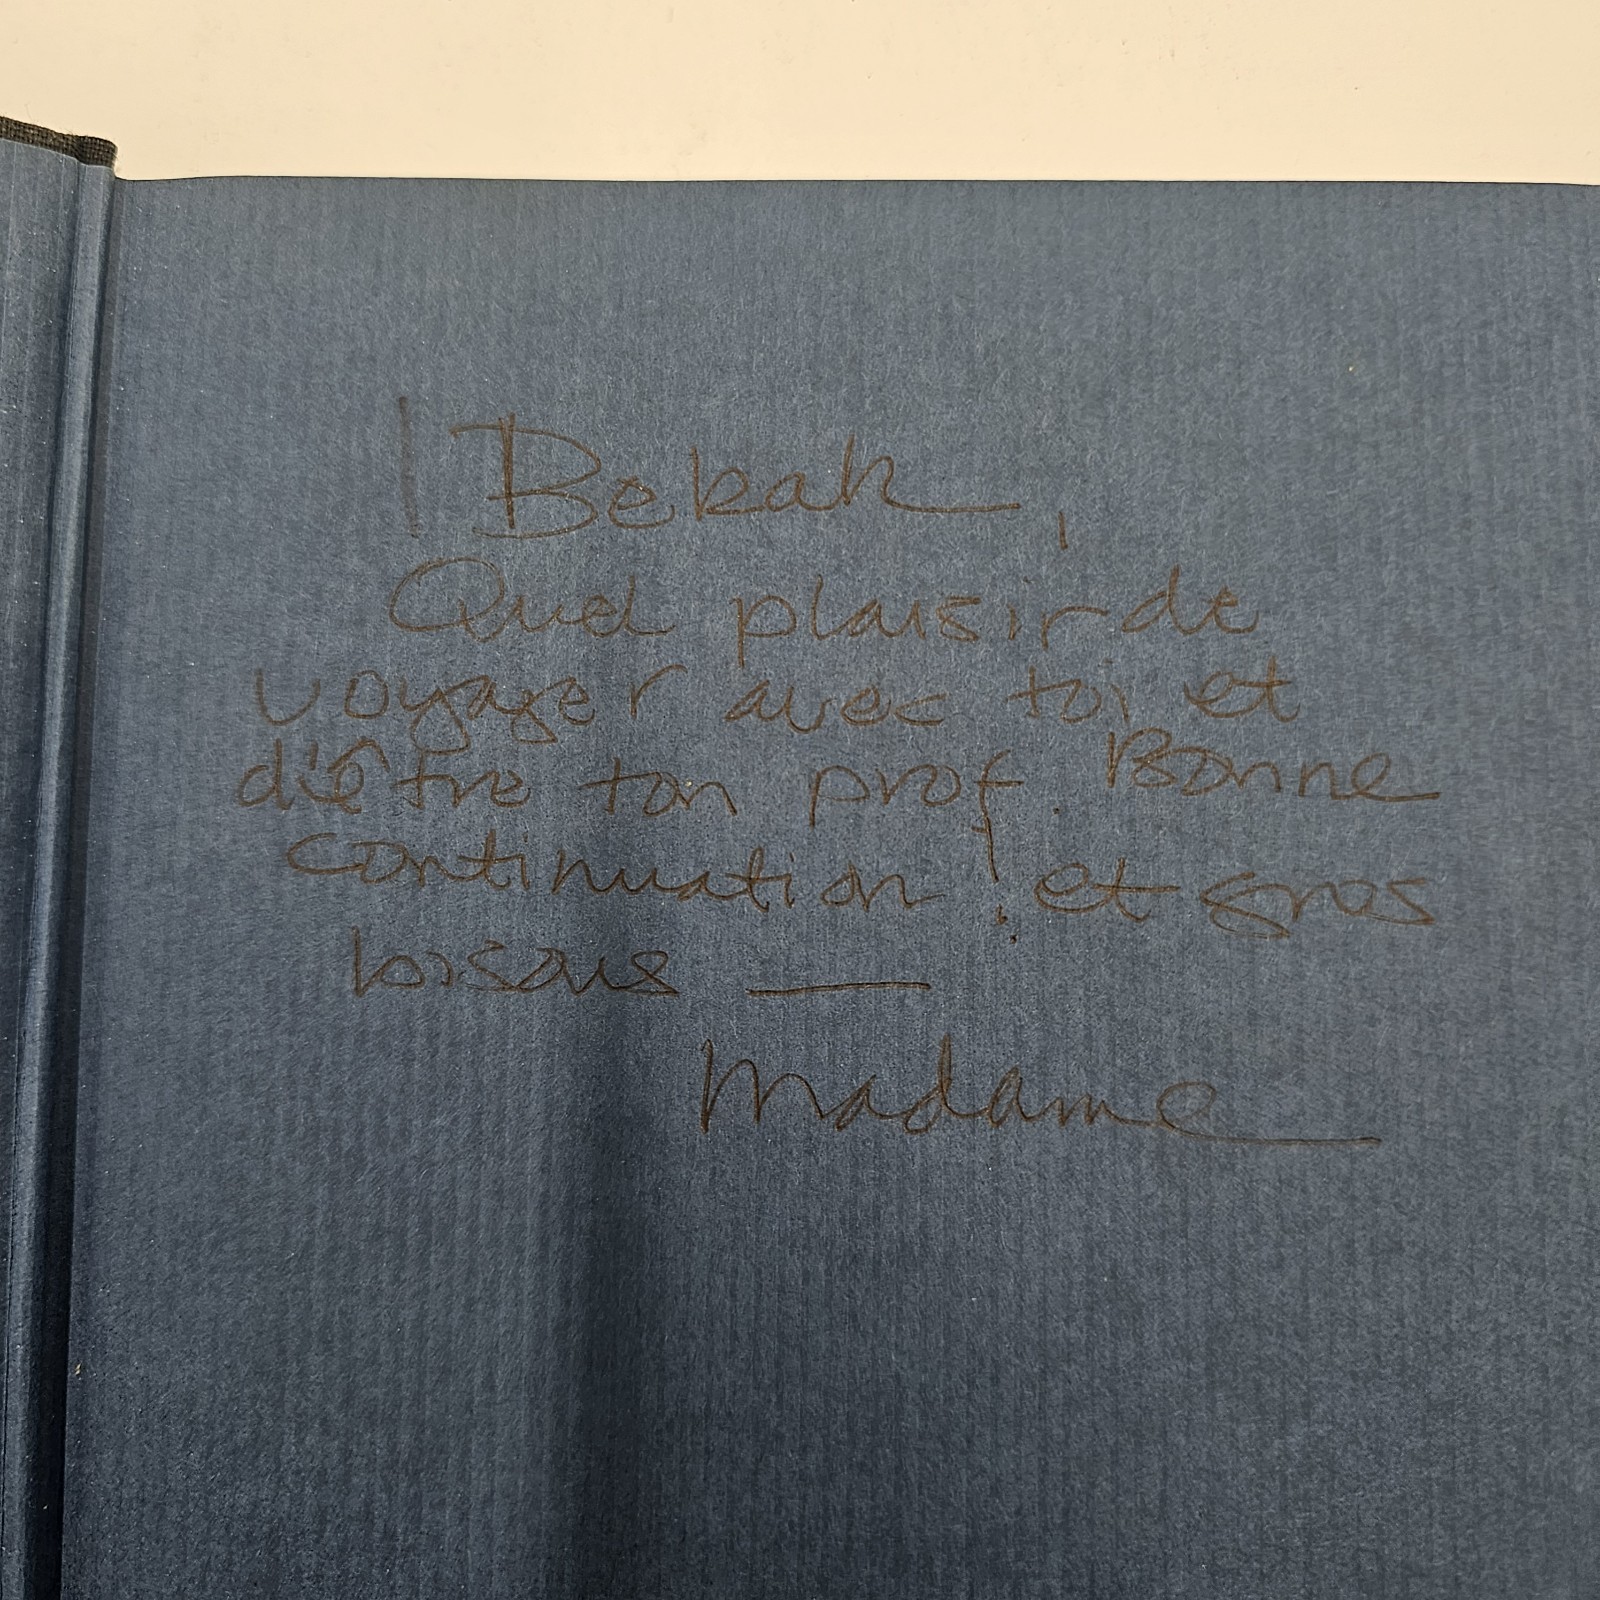 Bekah,
Quel plaisir de
voyager avec toi et
d'être ton prof. Bonne
continuation ! et gros
bisous —
Madame